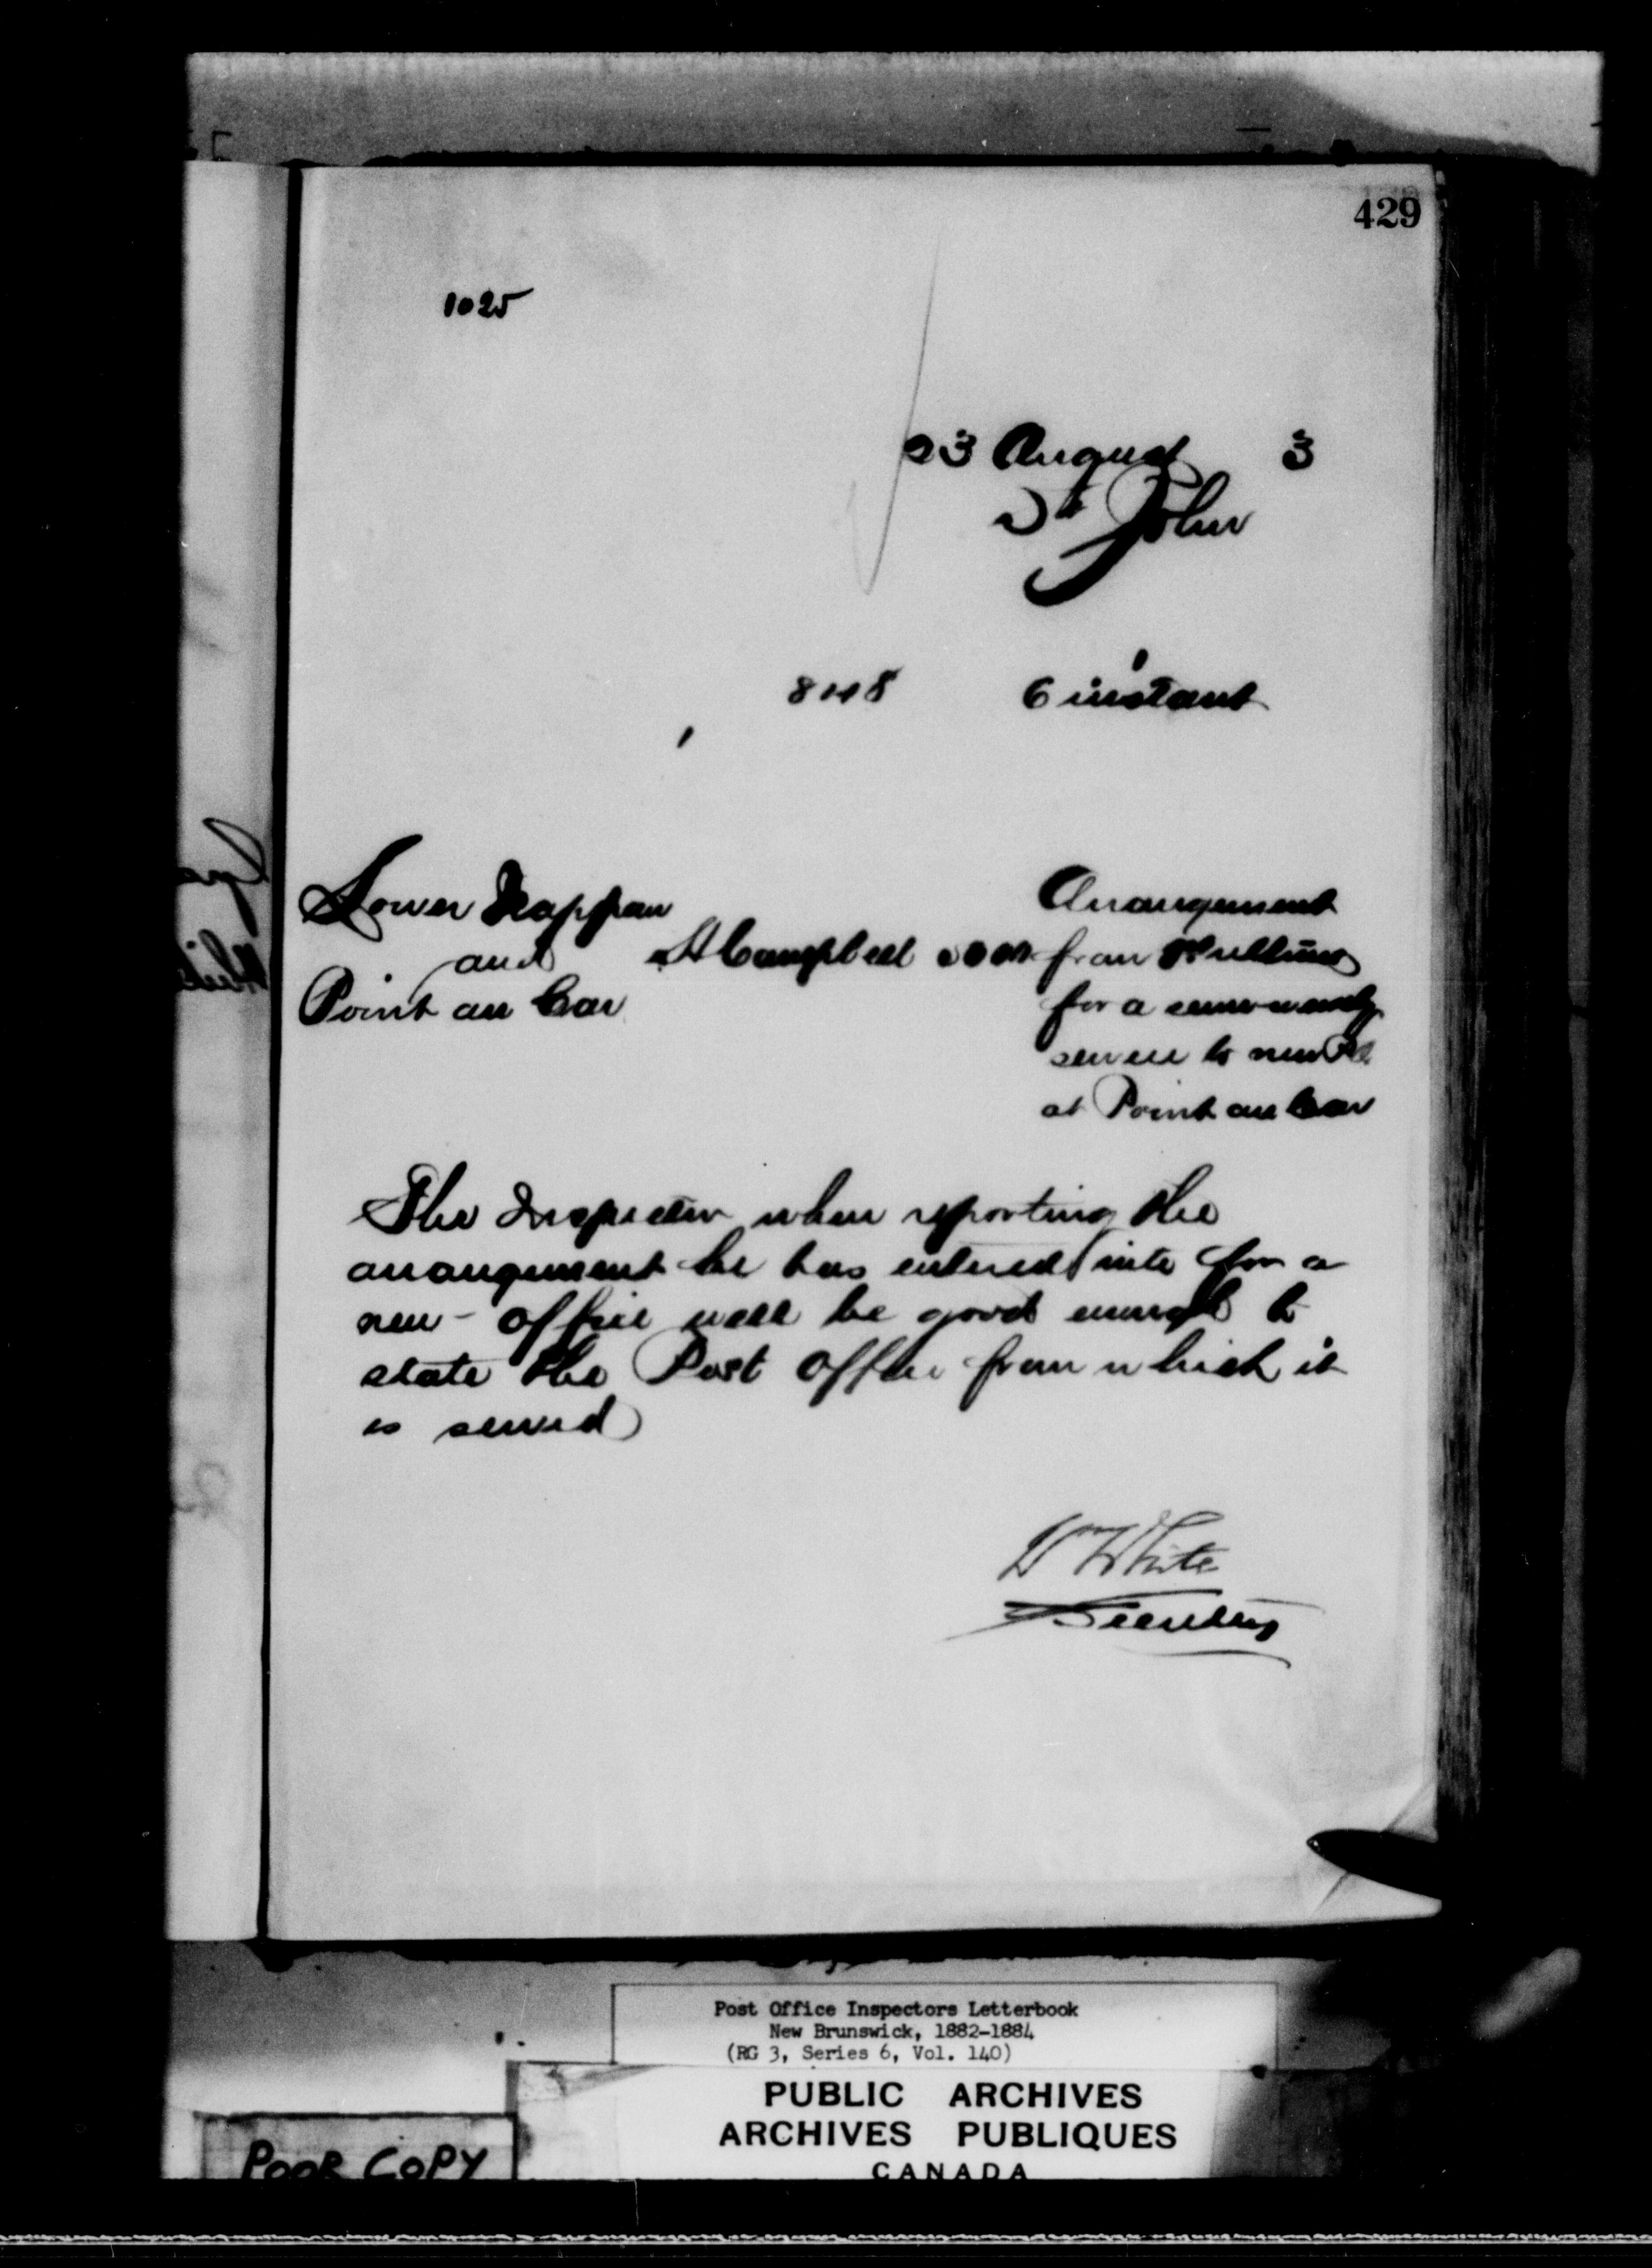 429
1025
23 August 3
St John
6 instant
Lower Nappan
and
Point au Car
A Campbell
Arrangement
from
for a semi-weekly
service to new PO
at Point au Car
The Inspector when reporting the
arrangement he has entered into for a
new office will be good enough to
state the Post Office from which it
is served
W White
Secretary
Post Office Inspectors Letterbook
New Brunswick, 1882-1884
(RG 3, Series 6, Vol. 140)
PUBLIC ARCHIVES
ARCHIVES PUBLIQUES
CANADA
POOR COPY